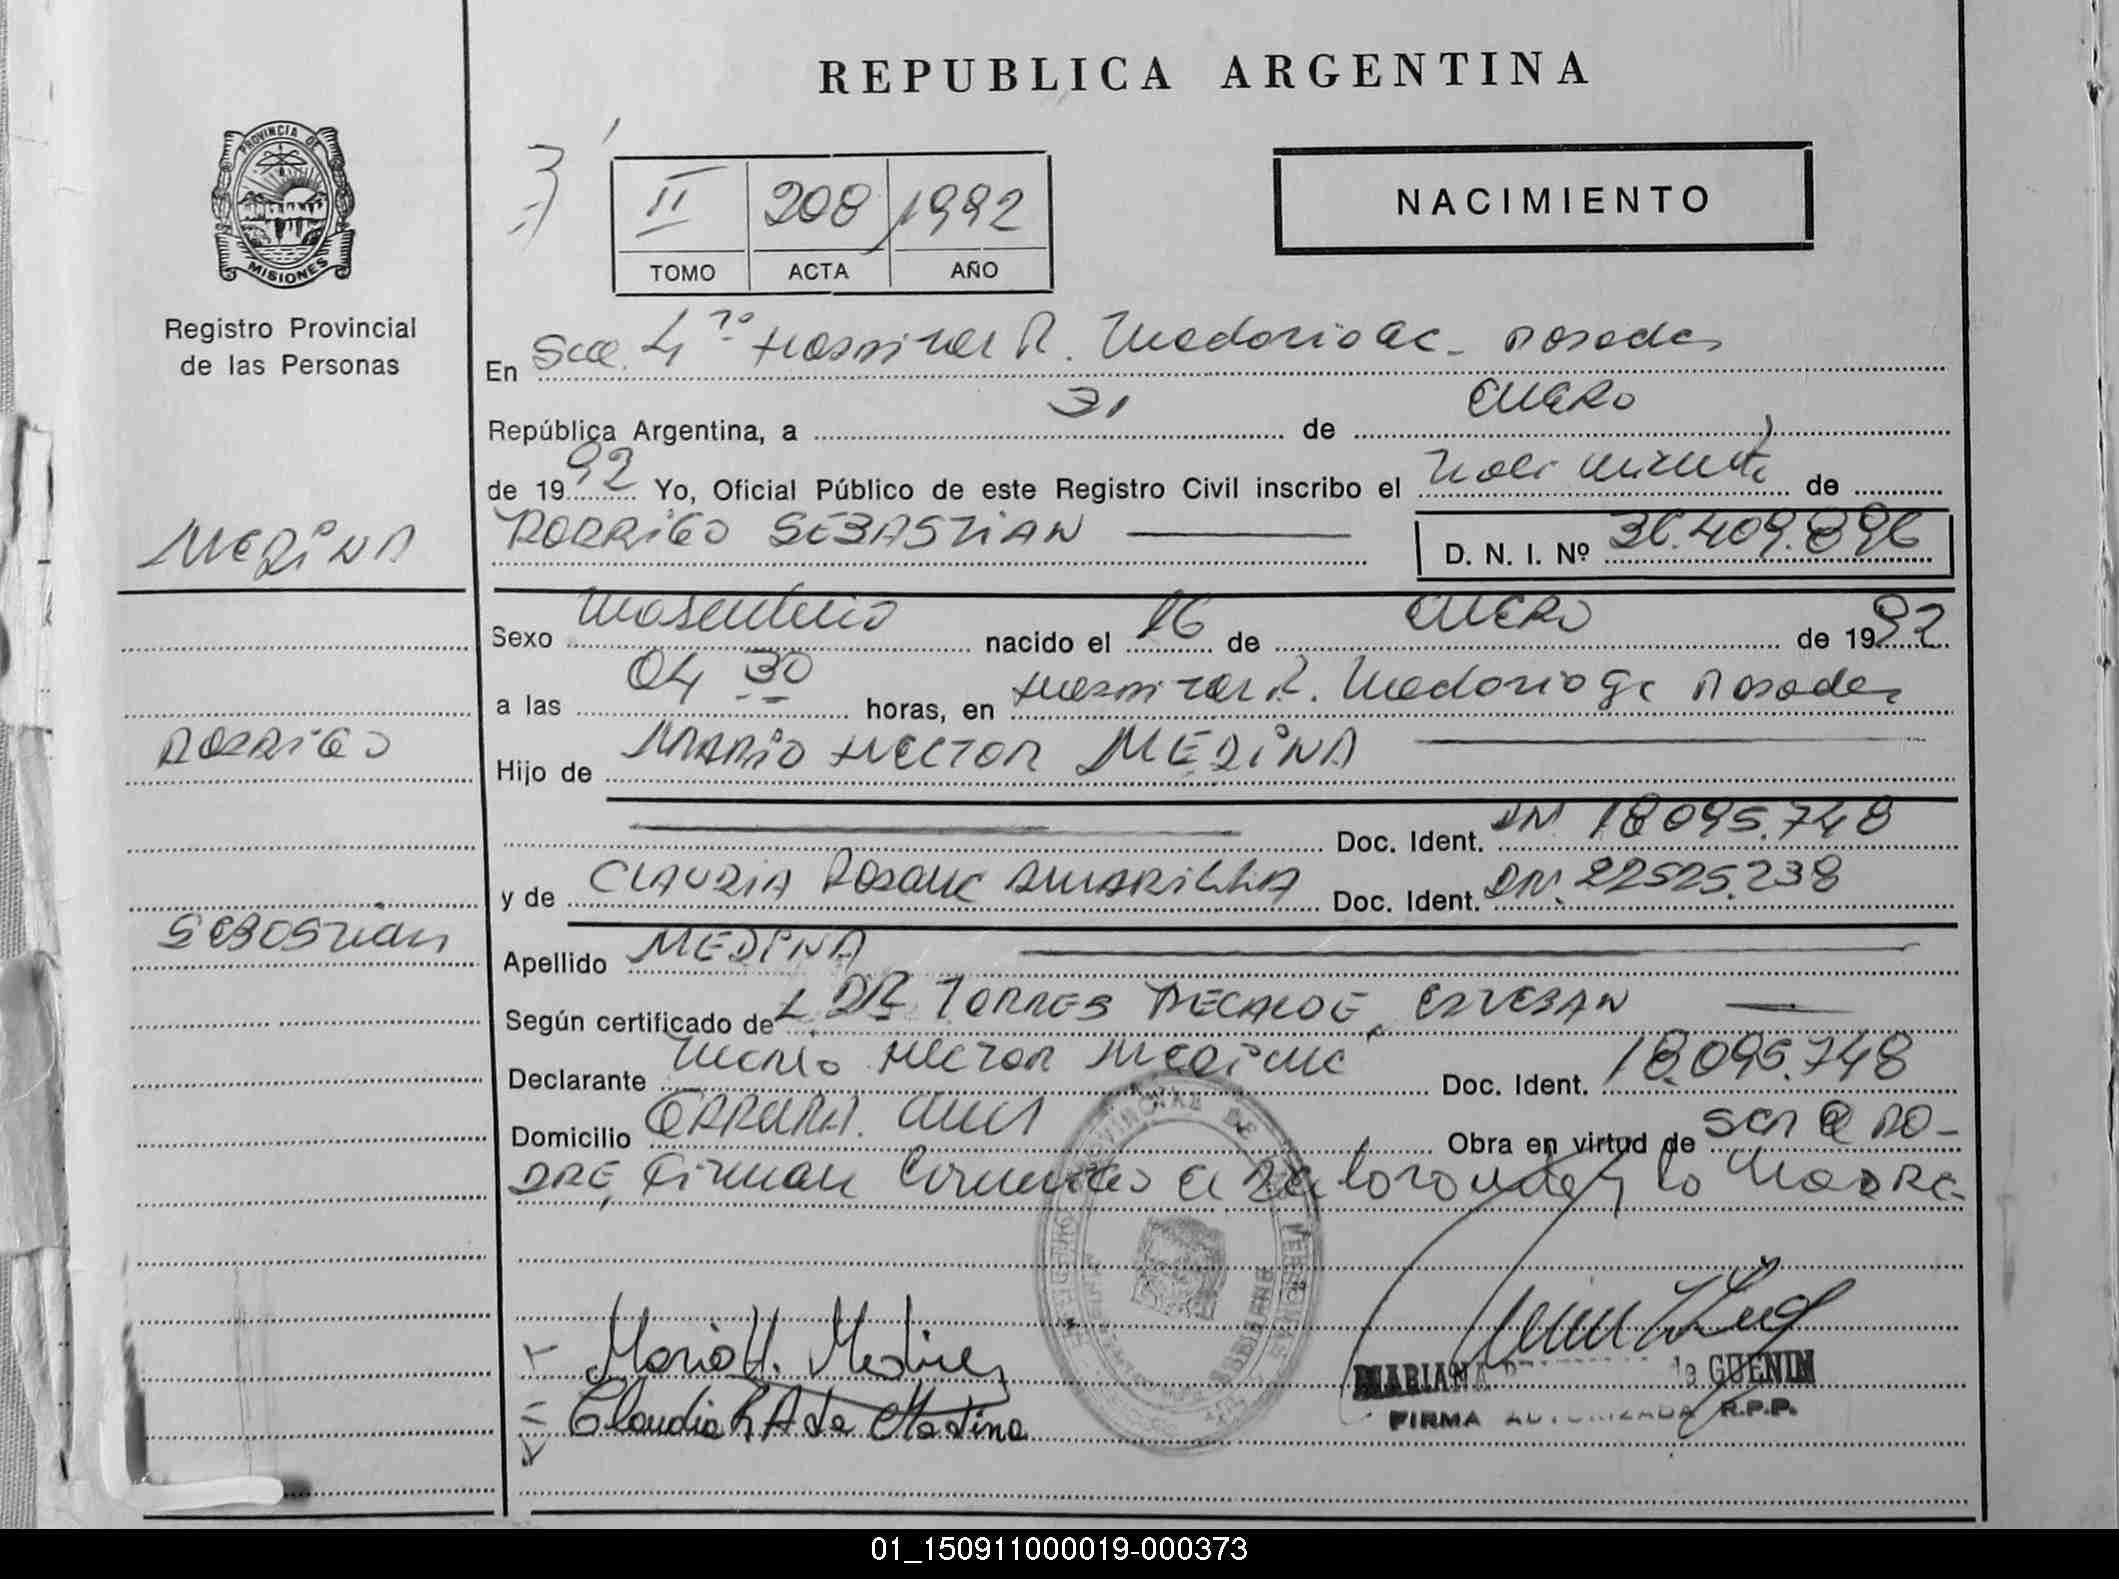 REPUBLICA ARGENTINA
PROVINCIA DE
MISIONES
Registro Provincial
de las Personas
II 208 1992
TOMO ACTA AÑO
NACIMIENTO
En Scc. 4ta Hospital R. Madariaga - Posadas
República Argentina, a 31 de ENERO
de 1992 Yo, Oficial Público de este Registro Civil inscribo el Nacimiento de
RODRIGO SEBASTIAN D. N. I. Nº 36.409.896
MEDINA
Sexo Masculino nacido el 16 de ENERO de 1992
a las 04 30 horas, en Hospital R. Madariaga Posadas
RODRIGO
Hijo de MARIO HECTOR MEDINA
Doc. Ident. DNI 18095.748
y de CLAUDIA ROSANA AMARILLA Doc. Ident. DNI. 22525.238
SEBASTIAN
Apellido MEDINA
Según certificado de DR TORRES RECALDE, ESTEBAN
Declarante Mario Hector Medina Doc. Ident. 18.095.748
Domicilio Obra en virtud de ser el PA-
DRE, Firman Conmigo el declarante y la MADRE-
Mario H. Medina
Claudia R A de Medina
MARIANA de GUENIN
FIRMA AUTORIZADA R.P.P.
01_150911000019-000373